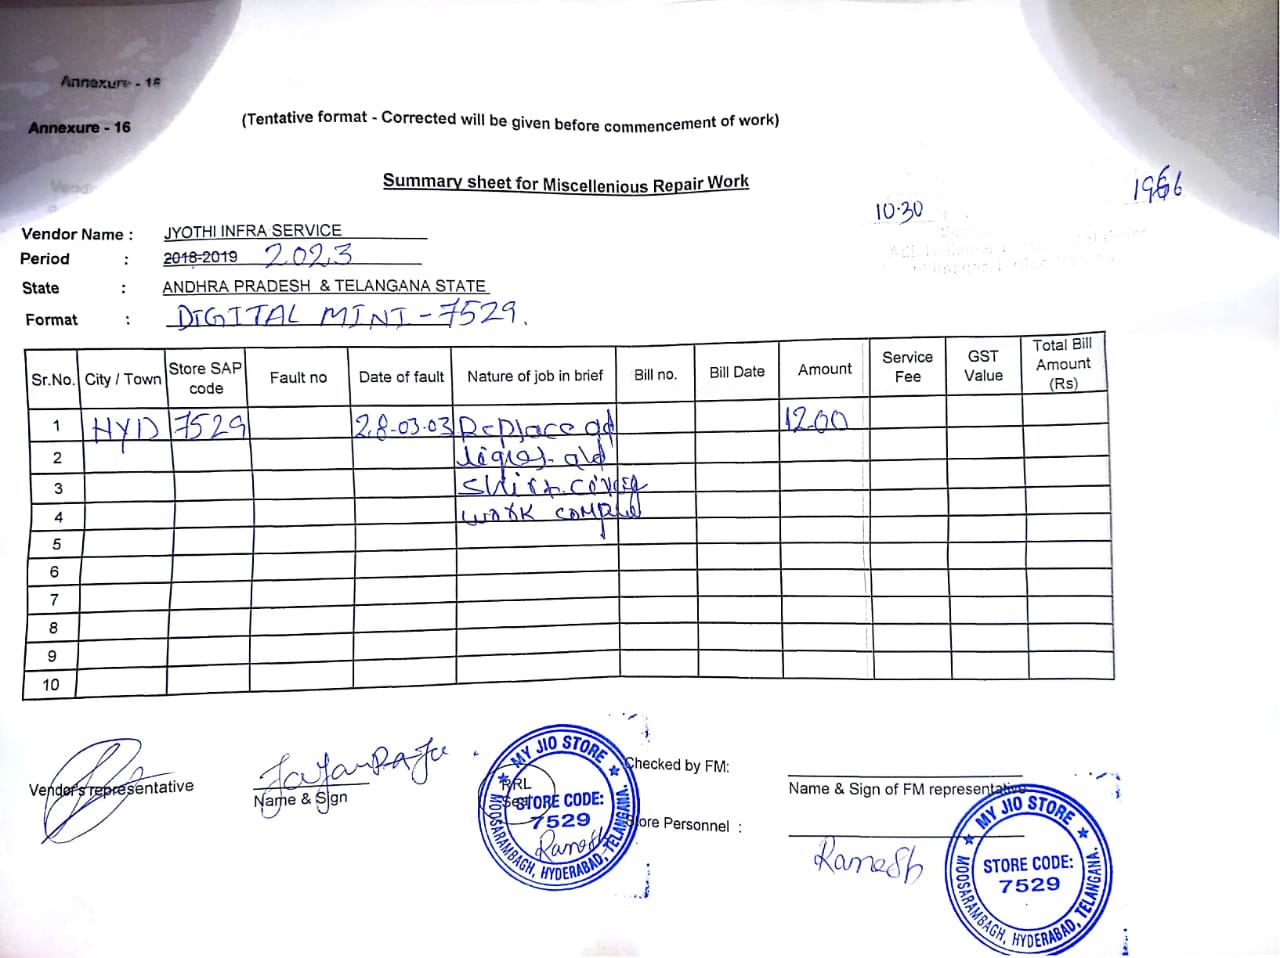 Annexure - 16
Annexure - 16
(Tentative format - Corrected will be given before commencement of work)
Summary sheet for Miscellenious Repair Work
10.30
Vendor Name : JYOTHI INFRA SERVICE
Period : 2018-2019 2023
State : ANDHRA PRADESH & TELANGANA STATE
Format : DIGITAL MINI - 7529.
Sr.No. City / Town Store SAP code Fault no Date of fault Nature of job in brief Bill no. Bill Date Amount Service Fee GST Value Total Bill Amount (Rs)
1 HYD 7529 28-03-03 Replace 1200
2
3
4 work
5
6
7
8
9
10
Vendor's representative
Name & Sign
RRL
Seal
MY JIO STORE
STORE CODE:
7529
MOOSARAMBAGH, HYDERABAD, TELANGANA.
Ramesh
Checked by FM:
Store Personnel :
Name & Sign of FM representative
Ramesh
MY JIO STORE
STORE CODE:
7529
MOOSARAMBAGH, HYDERABAD, TELANGANA.